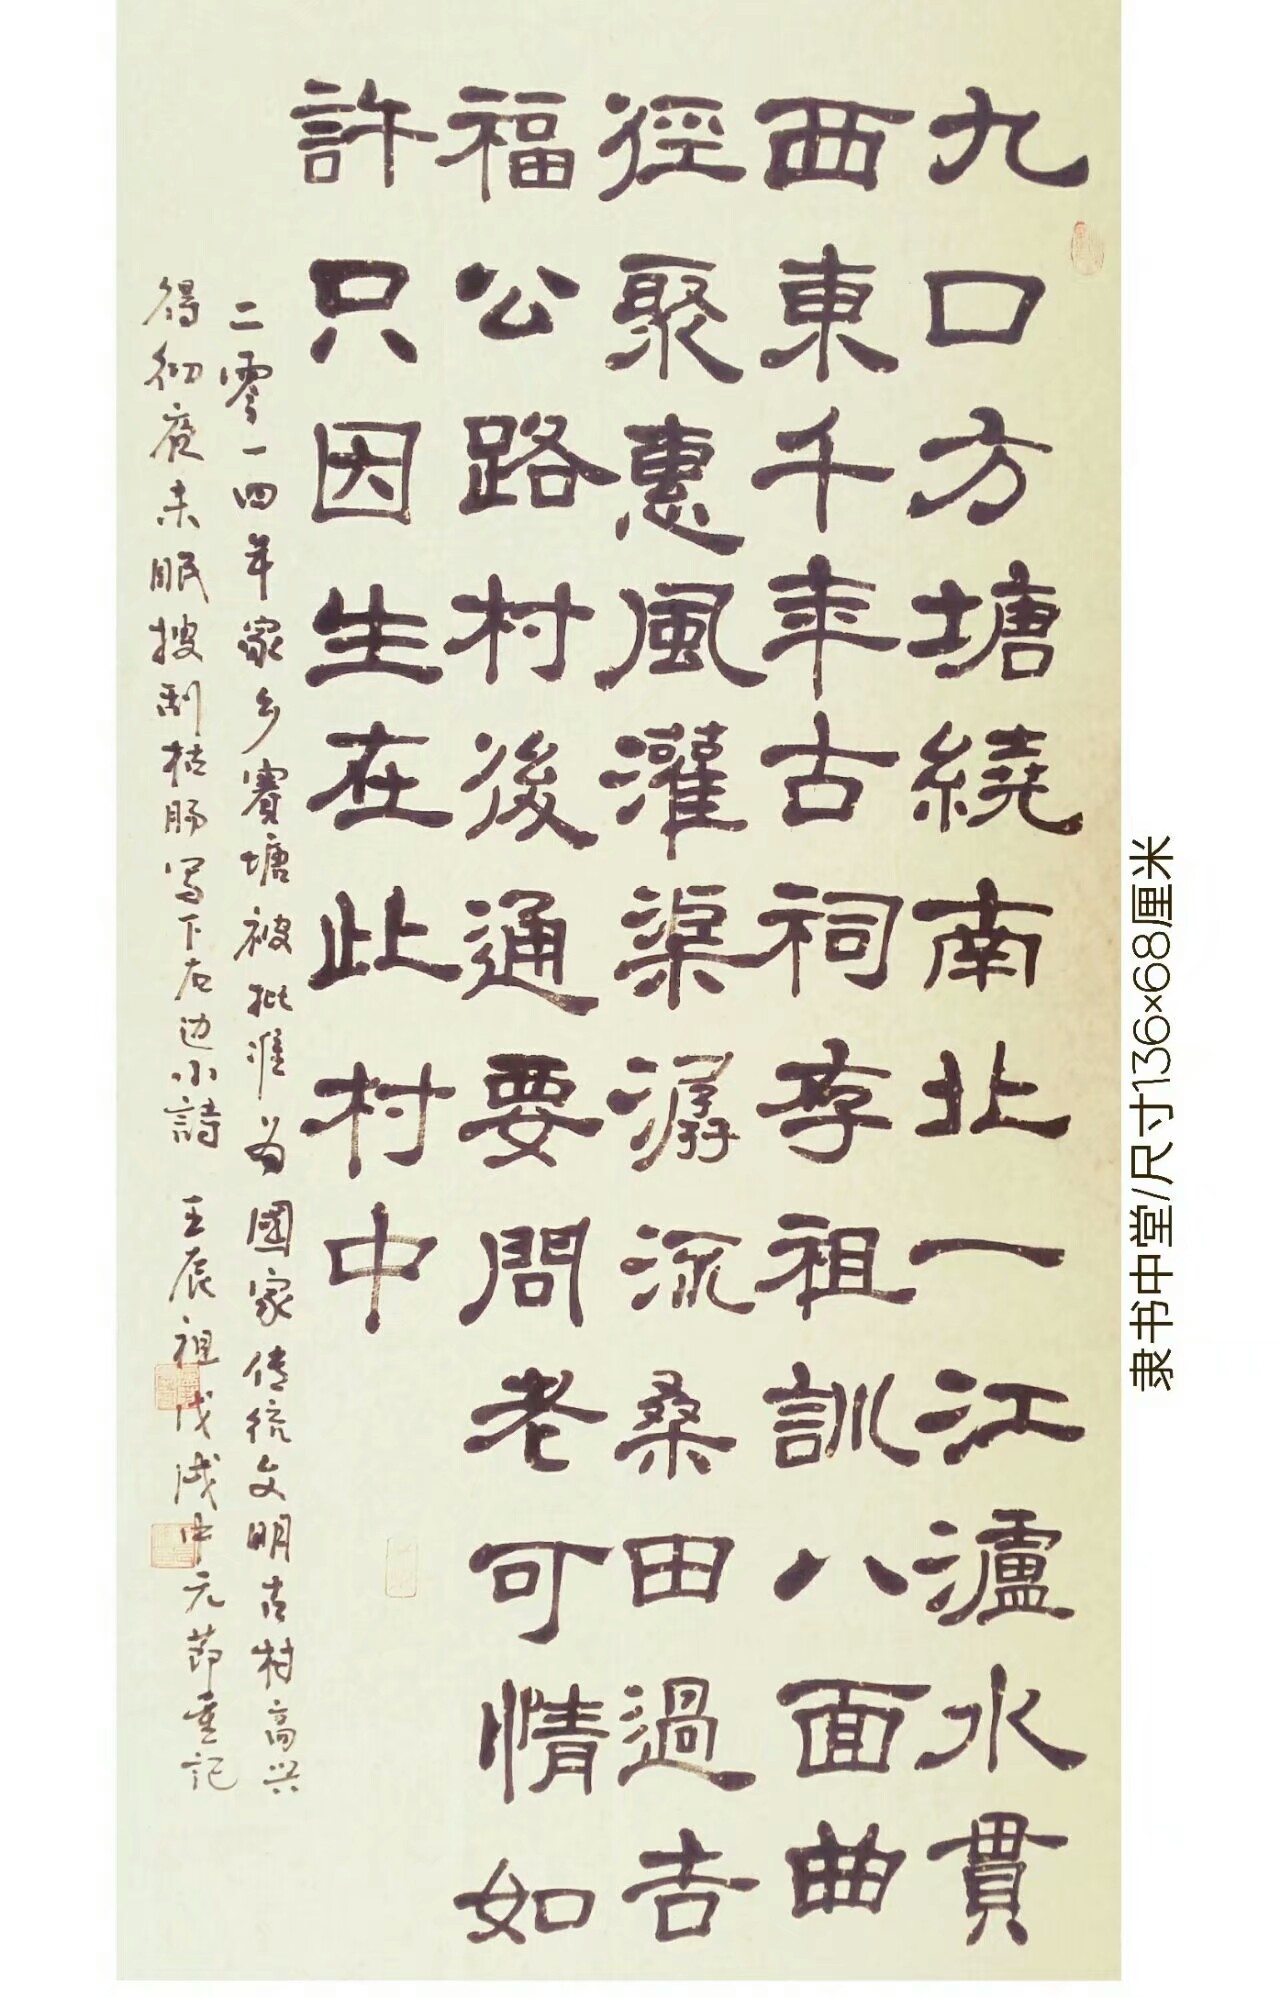 九口方塘繞南北一江瀘水貫
西東千年古祠存祖訓八面曲
徑聚惠風灌渠潺流桑田過吉
福公路村後通要問老可情如
許只因生在此村中
二零一四年家乡寶塘被批准为國家传统文明古村高兴
得彻夜未眠搜刮枯肠写下右边小詩 王辰祖戊戌中元節重记
隶书中堂/尺寸136×68厘米